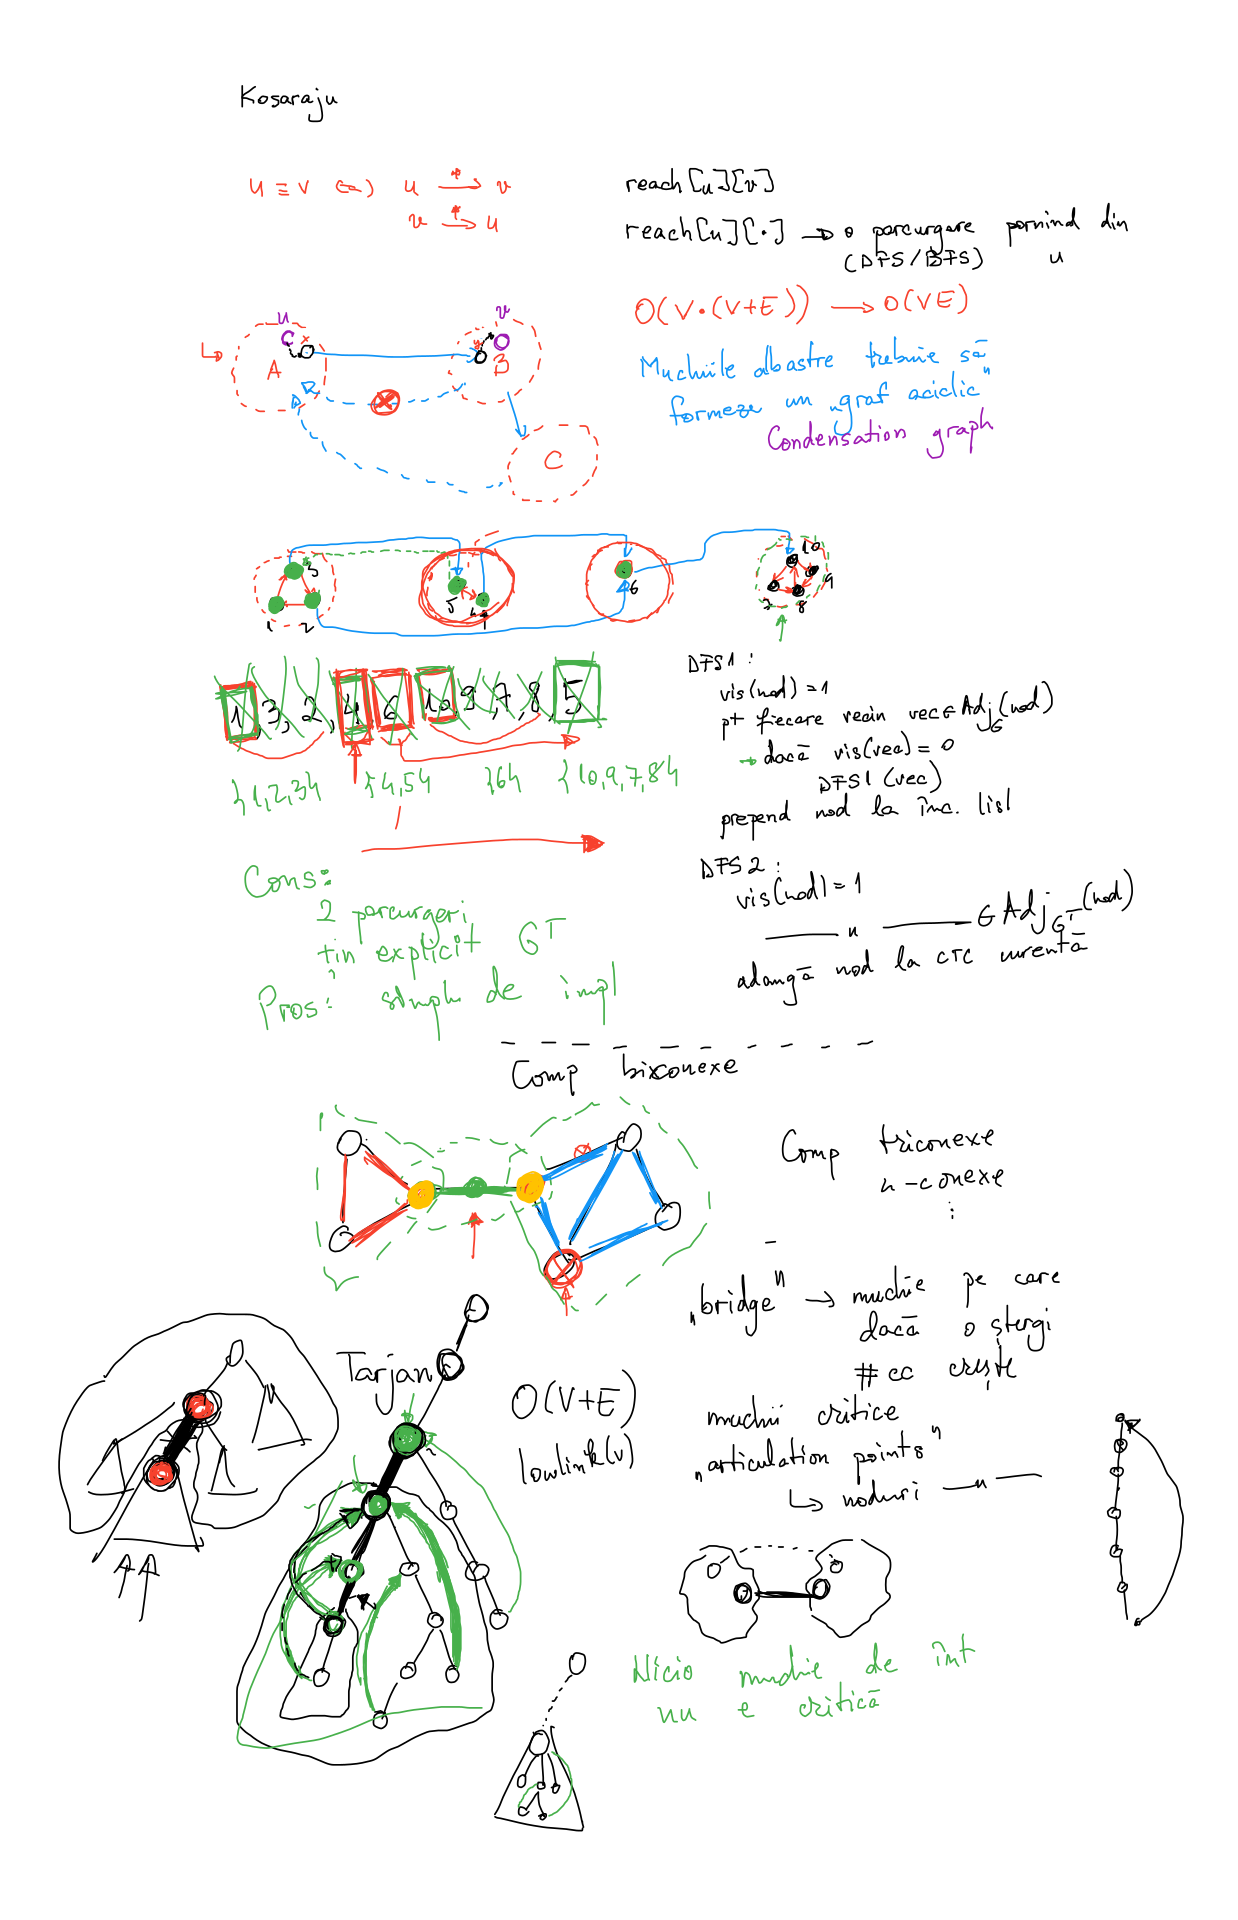 Kosaraju
u ≡ v ⇔ u →* v
v →* u
reach[u][v]
reach[u][·] → o parcurgere pornind din u
(DFS/BFS)
O(V·(V+E)) → O(VE)
Muchiile albastre trebuie să
formeze un „graf aciclic"
Condensation graph
u
x
A
v
y
B
C
3
1
2
5
4
6
10
9
7
8
1, 3, 2, 4, 6, 10, 9, 7, 8, 5
{1,2,3} {4,5} {6} {10,9,7,8}
DFS1:
vis(nod) = 1
pt fiecare vecin vec ∈ Adj_G(nod)
→ dacă vis(vec) = 0
DFS1(vec)
prepend nod la înc. list
DFS2:
vis(nod) = 1
— " — ∈ Adj_G^T(nod)
adaugă nod la CTC curentă
Cons:
2 parcurgeri
țin explicit G^T
Pros: simplu de impl
Comp biconexe
Comp triconexe
n-conexe
⋮
„bridge" → muchie pe care
dacă o ștergi
# cc crește
Tarjan
O(V+E)
lowlink(v)
muchii critice
„articulation points"
↳ noduri — " —
Nicio muchie de înt
nu e critică